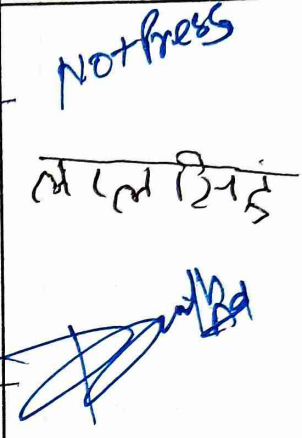 Not Press
लाल सिंह